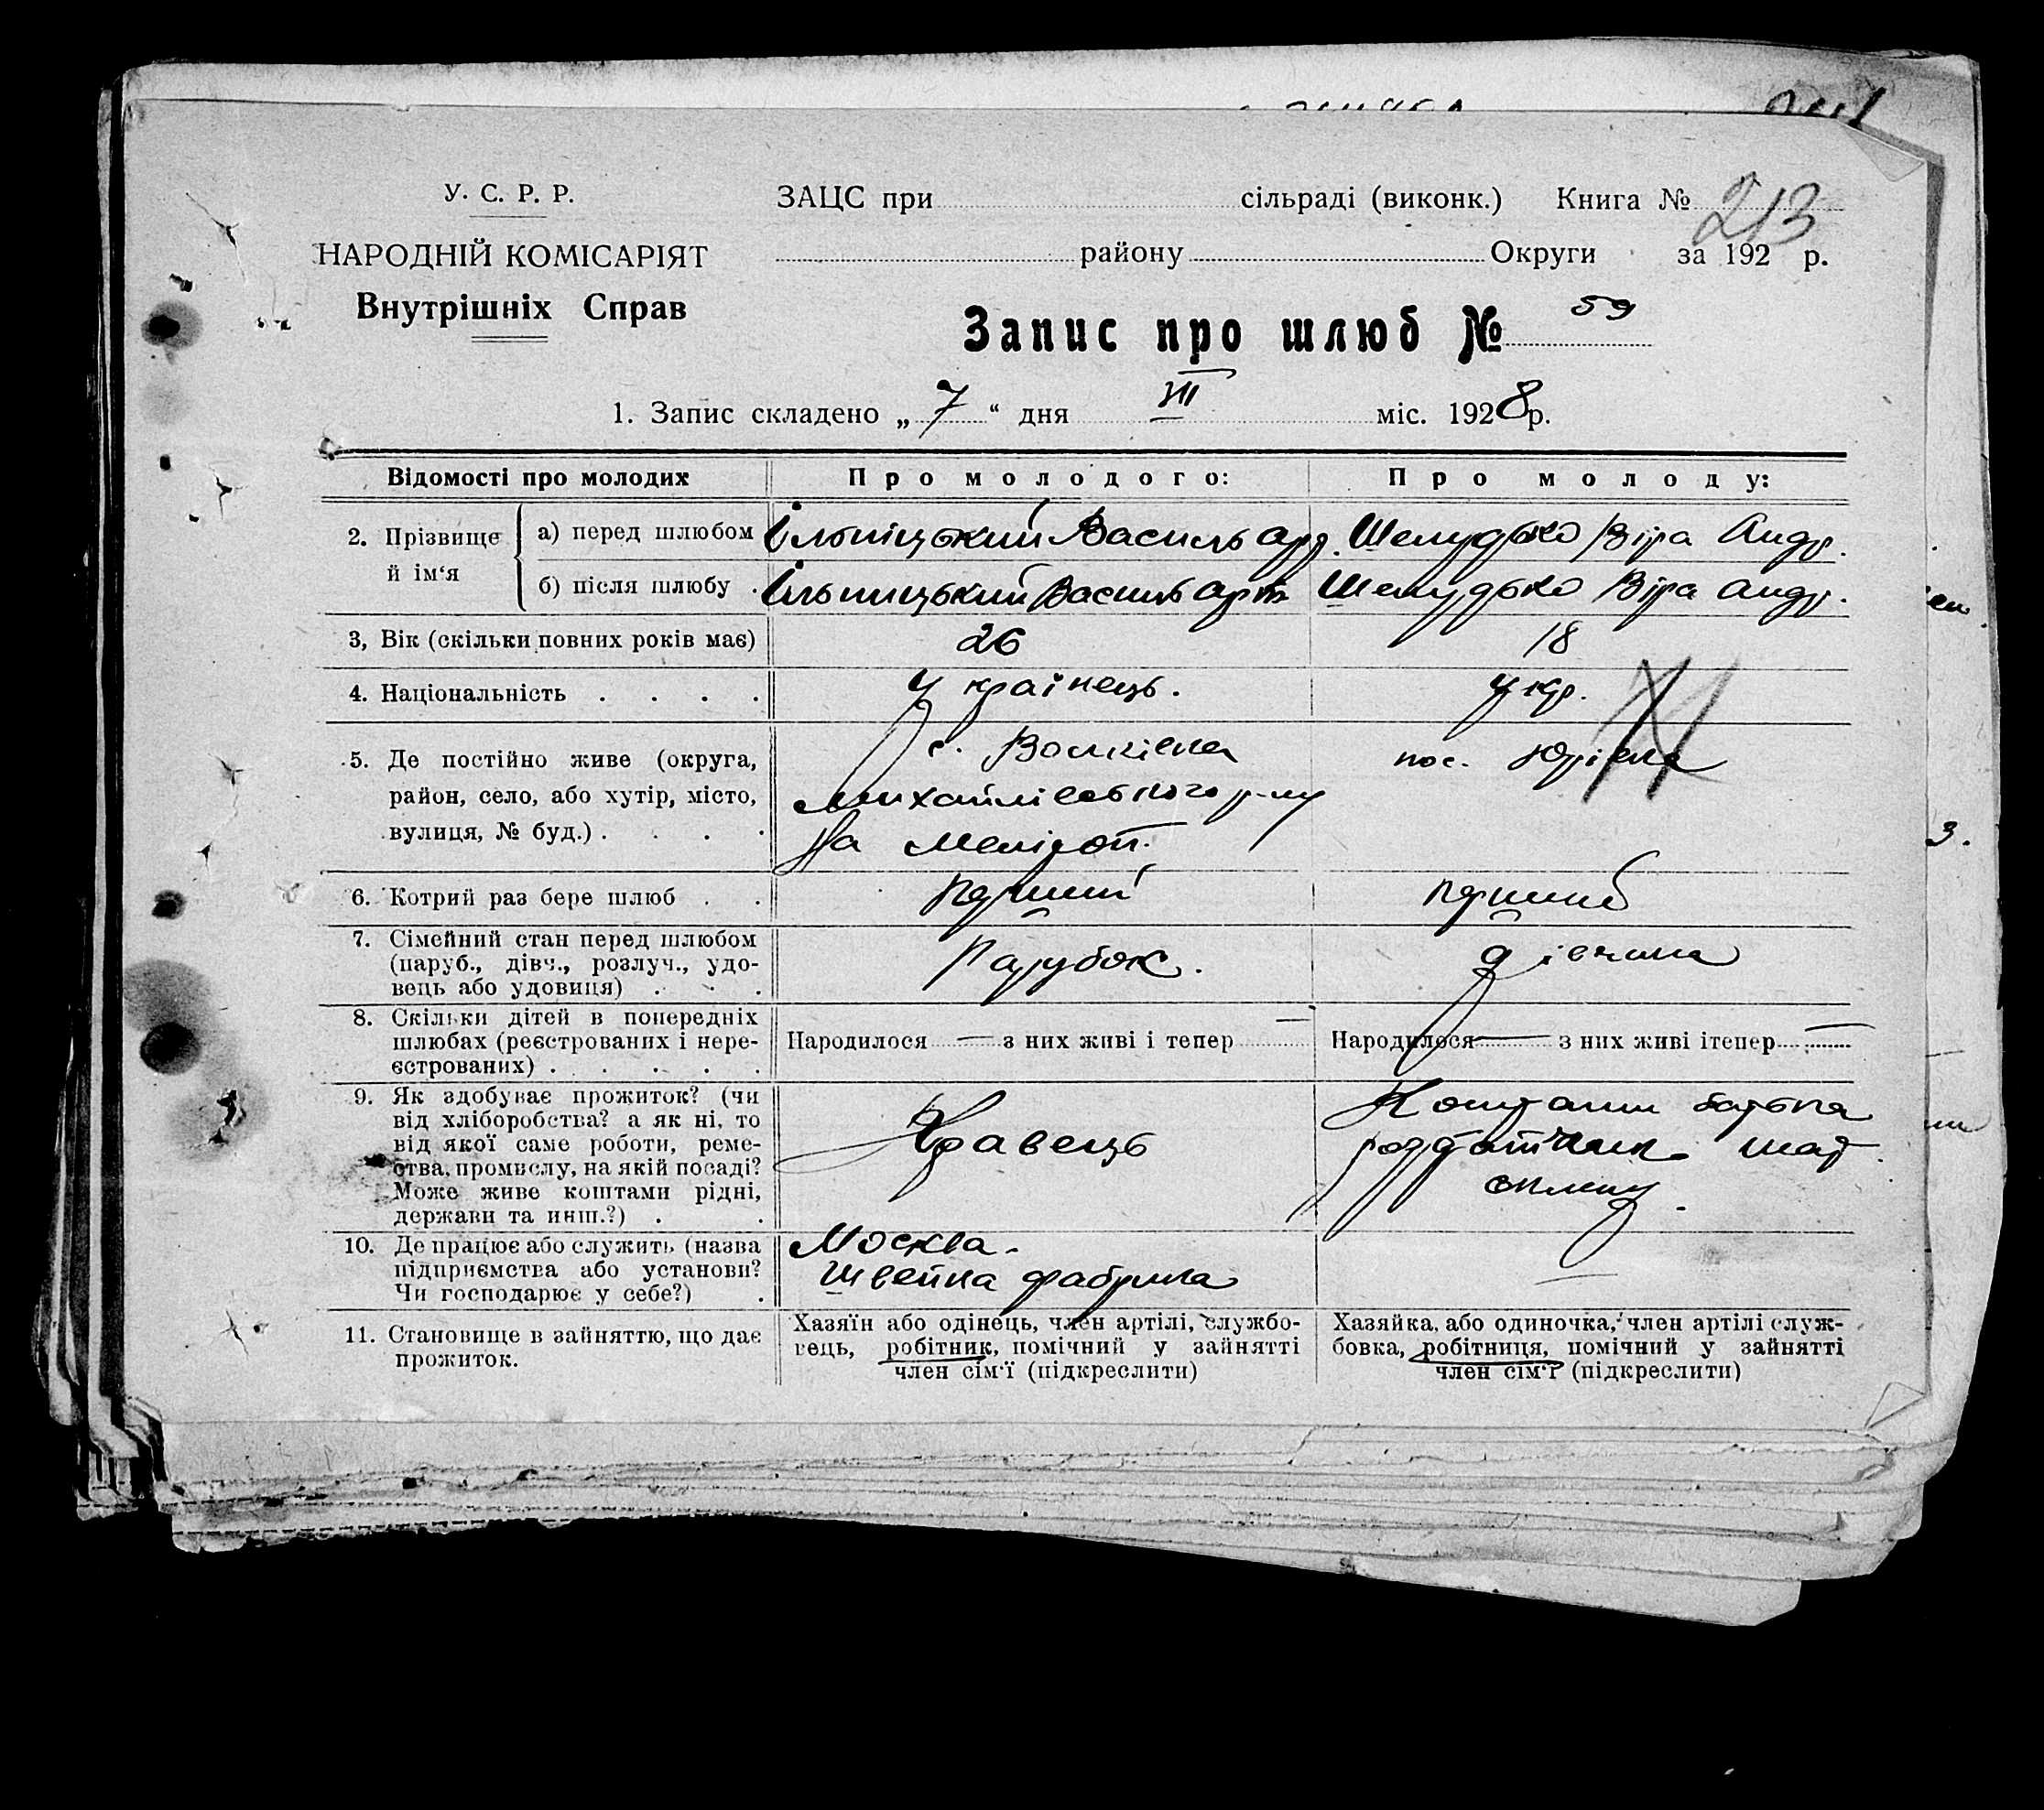 У. С. Р. Р.
НАРОДНІЙ КОМІСАРІЯТ
Внутрішніх Справ
ЗАЦС при сільраді (виконк.) Книга № 213
району Округи за 192 р.
Запис про шлюб № 59
1. Запис складено „7“ дня VII міс. 1928 р.
Відомості про молодих Про молодого: Про молоду:
2. Прізвище й ім‘я
а) перед шлюбом Ільніцький Василь Шелудько Віра Андр.
б) після шлюбу Ільницький Василь Шелудько Віра Андр.
3, Вік (скільки повних років має) 26 18
4. Національність . . . . Українець. Укр.
5. Де постійно живе (округа,
район, село, або хутір, місто,
вулиця, № буд.) . . . .
с.
Михайлівського р-ну
на Меліроп.
пос.
6. Котрий раз бере шлюб . . перший перший
7. Сімейний стан перед шлюбом
(паруб., дівч., розлуч., удо-
вець або удовиця) . . .
Парубок. дівчина
8. Скільки дітей в попередніх
шлюбах (реєстрованих і нере-
єстрованих) . . . . .
Народилося — з них живі і тепер —
Народилося — з них живі ітепер —
9. Як здобуває прожиток? (чи
від хліборобства? а як ні, то
від якої саме роботи, реме-
ства, промислу, на якій посаді?
Може живе коштами рідні,
держави та инш.?) . .
Кравець
Коштами батька
10. Де працює або служить (назва
підприємства або установи?
Чи господарює у себе?) .
Москва.
Швейна фабрика
—
11. Становище в зайняттю, що дає
прожиток.
Хазяїн або одінець, член артілі, службо-
вець, робітник, помічний у зайнятті
член сім‘ї (підкреслити)
Хазяйка, або одиночка, член артілі служ-
бовка, робітниця, помічний у зайнятті
член сім‘ї (підкреслити)